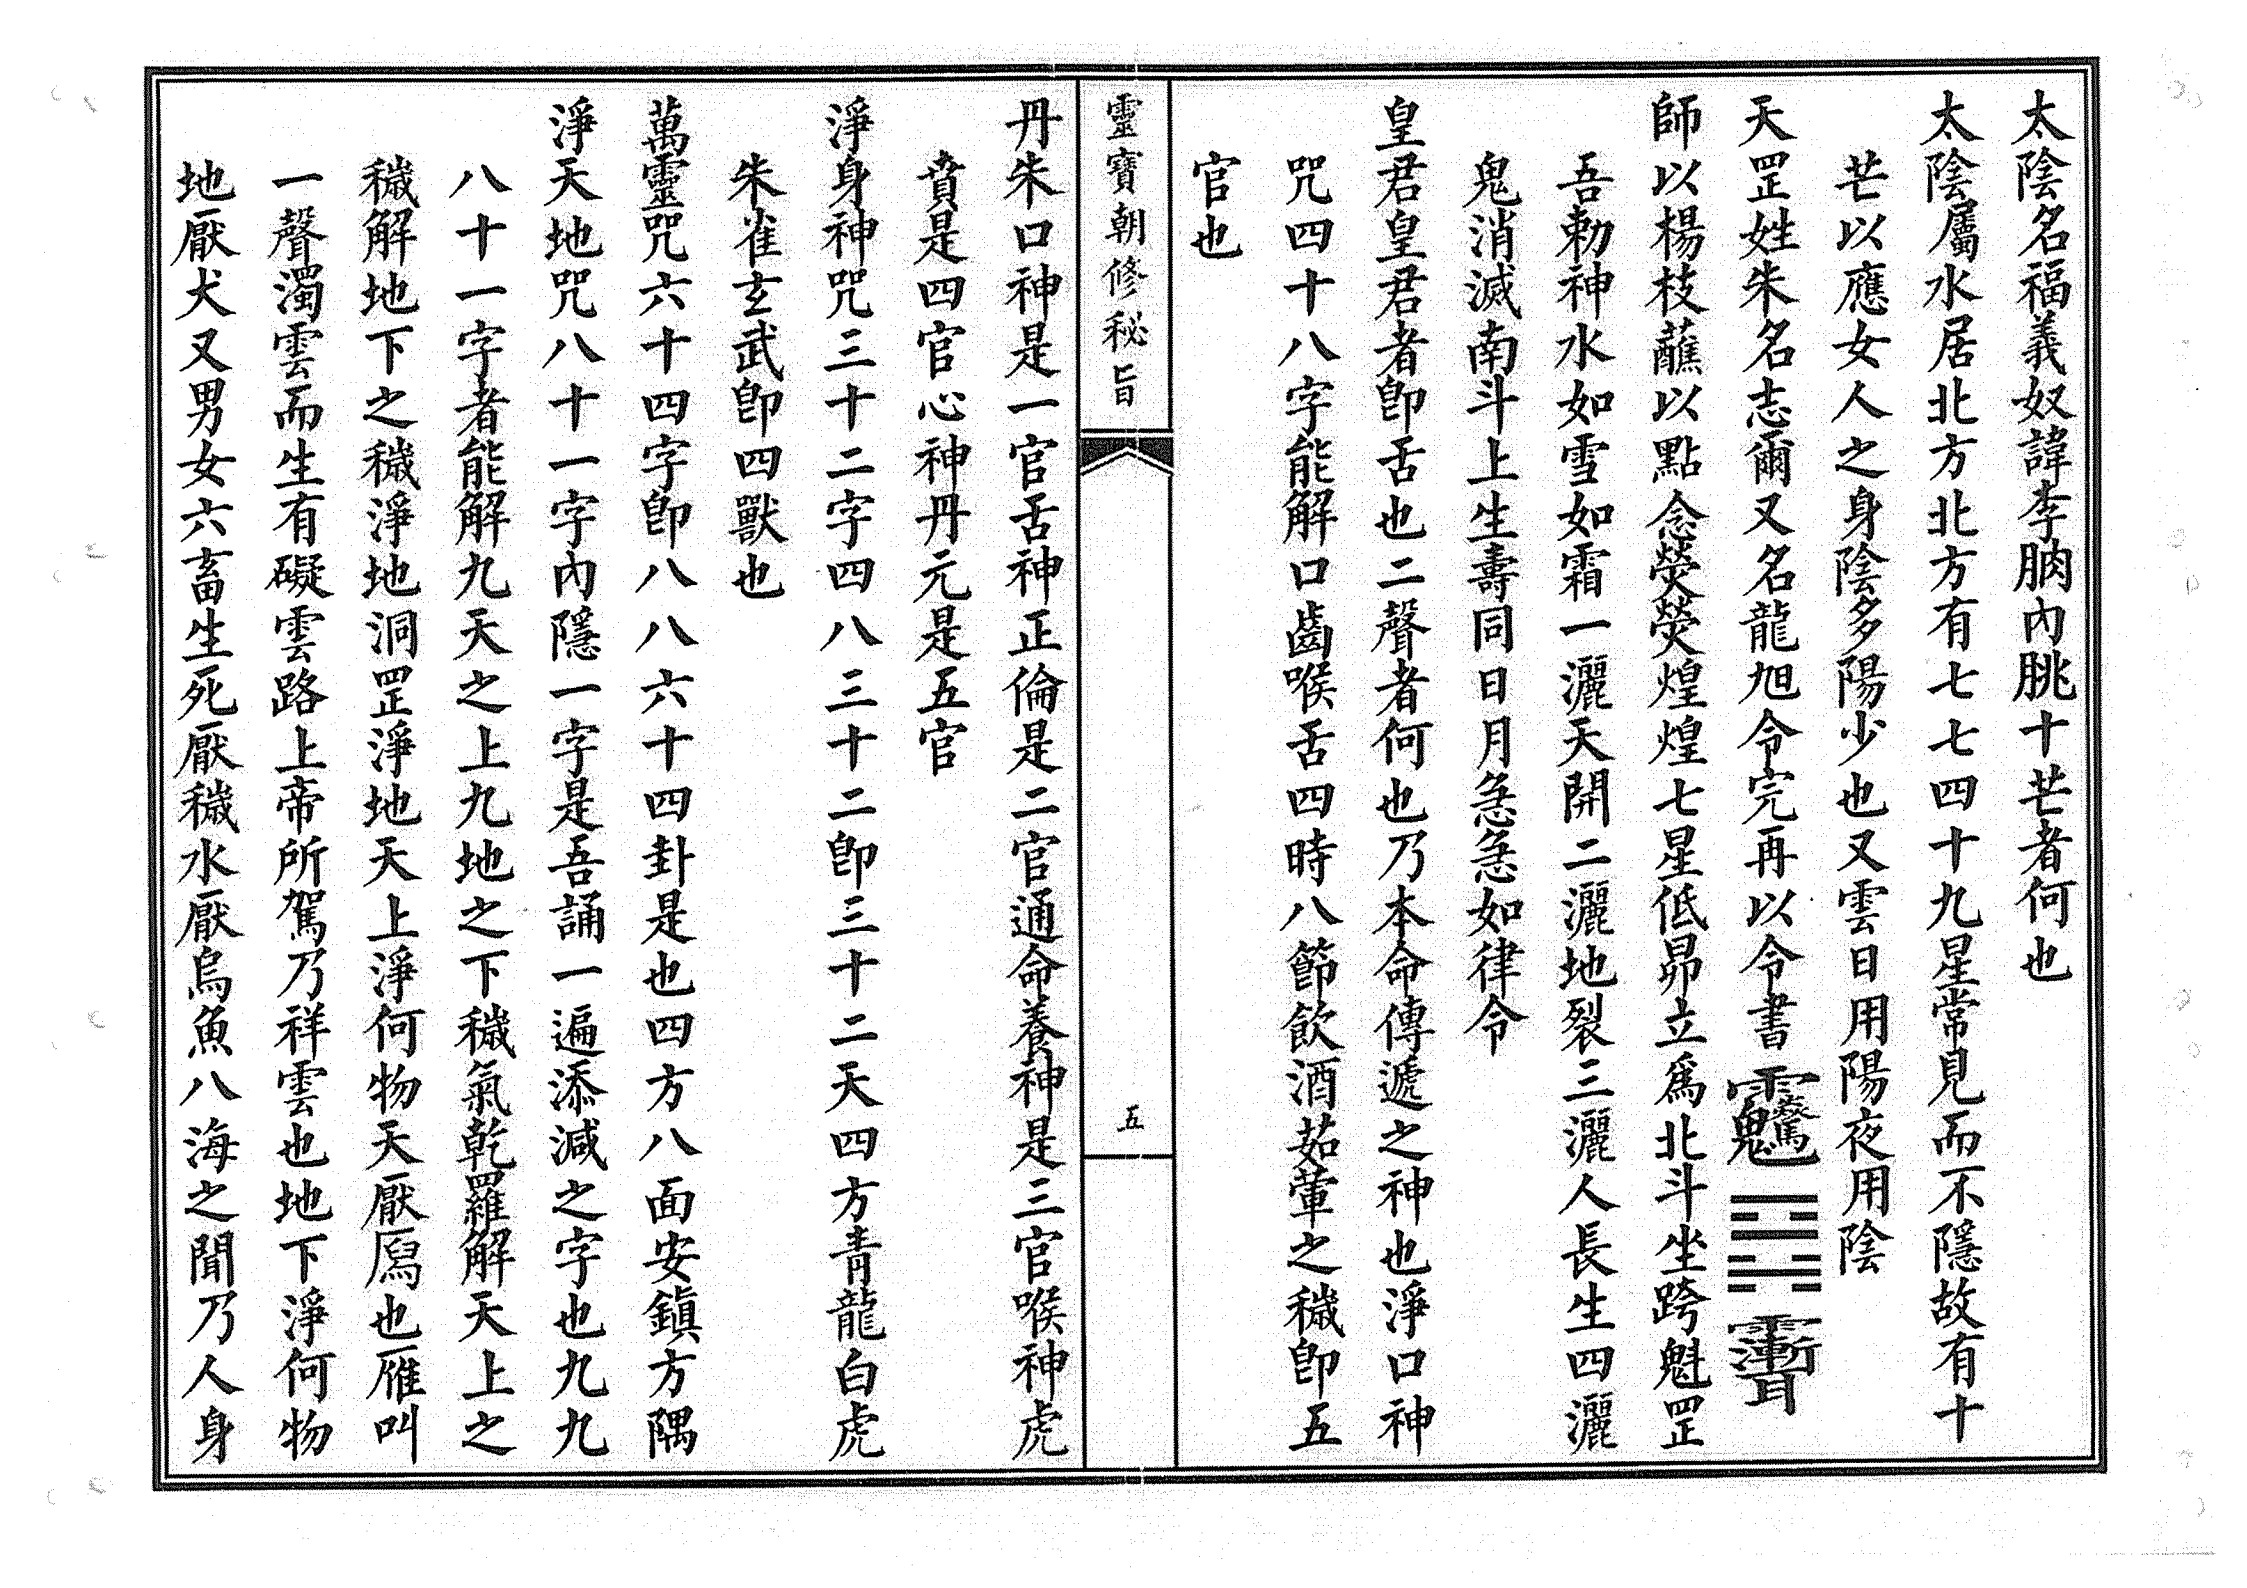 太陰名福義奴諱李腩內朓十芒者何也
太陰屬水居北方北方有七七四十九星常見而不隱故有十
芒以應女人之身陰多陽少也又雲日用陽夜用陰
天罡姓朱名志爾又名龍旭令完再以令書
師以楊枝蘸以點念熒熒煌煌七星低昂立為北斗坐跨魁罡
吾勅神水如雪如霜一灑天開二灑地裂三灑人長生四灑
鬼消滅南斗上生壽同日月急急如律令
皇君皇君者卽舌也二聲者何也乃本命傳遞之神也淨口神
咒四十八字能解口齒喉舌四時八節飲酒茹葷之穢卽五
官也
靈寶朝修秘旨
五
丹朱口神是一官舌神正倫是二官通命養神是三官喉神虎
賁是四官心神丹元是五官
淨身神咒三十二字四八三十二卽三十二天四方青龍白虎
朱雀玄武卽四獸也
萬靈咒六十四字卽八八六十四卦是也四方八面安鎮方隅
淨天地咒八十一字內隱一字是吾誦一遍添減之字也九九
八十一字者能解九天之上九地之下穢氣乾羅解天上之
穢解地下之穢淨地洞罡淨地天上淨何物天厭也雁叫
一聲濁雲而生有礙雲路上帝所駕乃祥雲也地下淨何物
地厭犬又男女六畜生死厭穢水厭烏魚八海之間乃人身